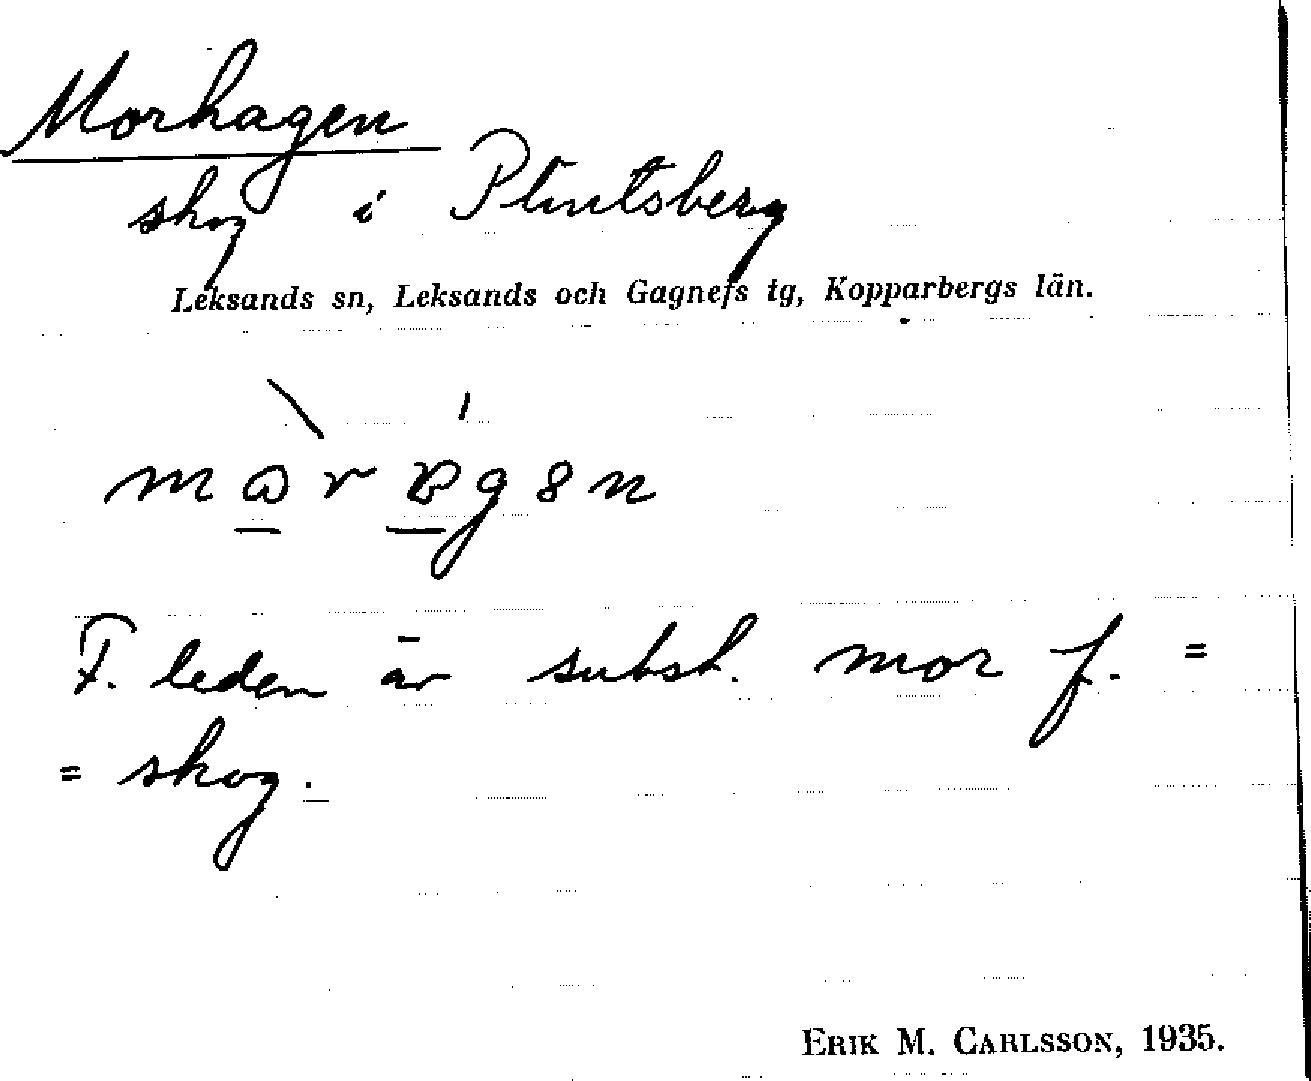 Morhagen
skog i Plintsberg
Leksands sn, Leksands och Gagnefs tg, Kopparbergs län.
F. leden är subst. mor f. =
= skog.
ERIK M. CARLSSON, 1935.